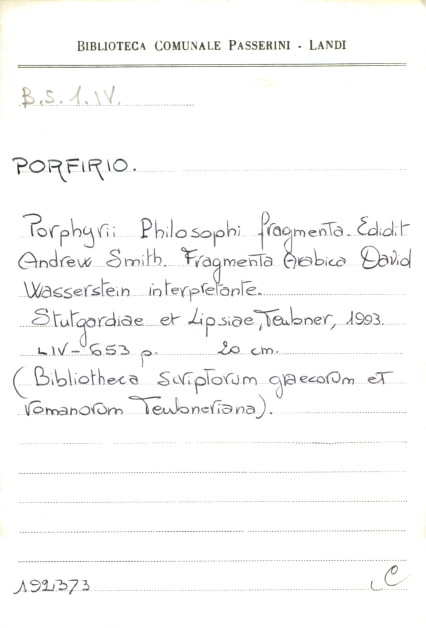 BIBLIOTECA COMUNALE PASSERINI - LANDI
B.S. 1. IV.
PORFIRIO.
Porphyrii Philosophi fragmenta. Edidit
Andrew Smith. Fragmenta Arabica David
Wasserstein interpretante.
Stutgardiae et Lipsiae, Teubner, 1993.
LIV - 653 p. 20 cm.
(Bibliotheca scriptorum graecorum et
romanorum Teubneriana).
192373 C